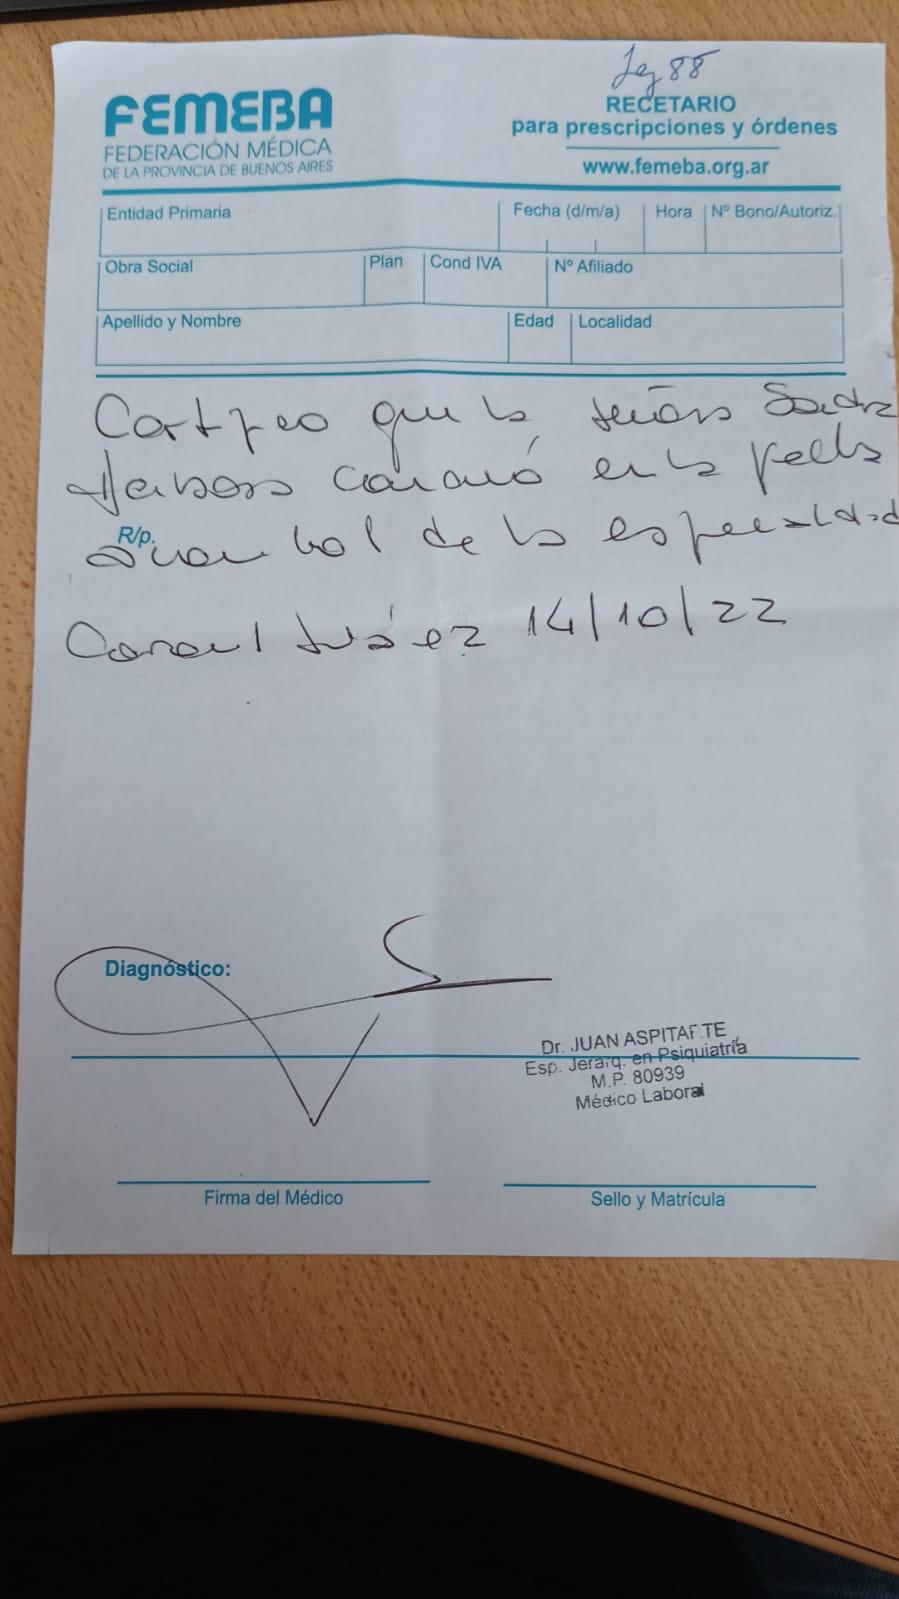 Leg 88
FEMEBA
FEDERACIÓN MÉDICA
DE LA PROVINCIA DE BUENOS AIRES
RECETARIO
para prescripciones y órdenes
www.femeba.org.ar
Entidad Primaria Fecha (d/m/a) Hora Nº Bono/Autoriz.
Obra Social Plan Cond IVA Nº Afiliado
Apellido y Nombre Edad Localidad
Certifico que la señora Sandra
concurrió en la fecha
R/p.
control de la especialidad
Coronel Suárez 14/10/22
Diagnóstico:
Dr. JUAN ASPITARTE
Esp. Jerarq. en Psiquiatría
M.P. 80939
Médico Laboral
Firma del Médico Sello y Matrícula